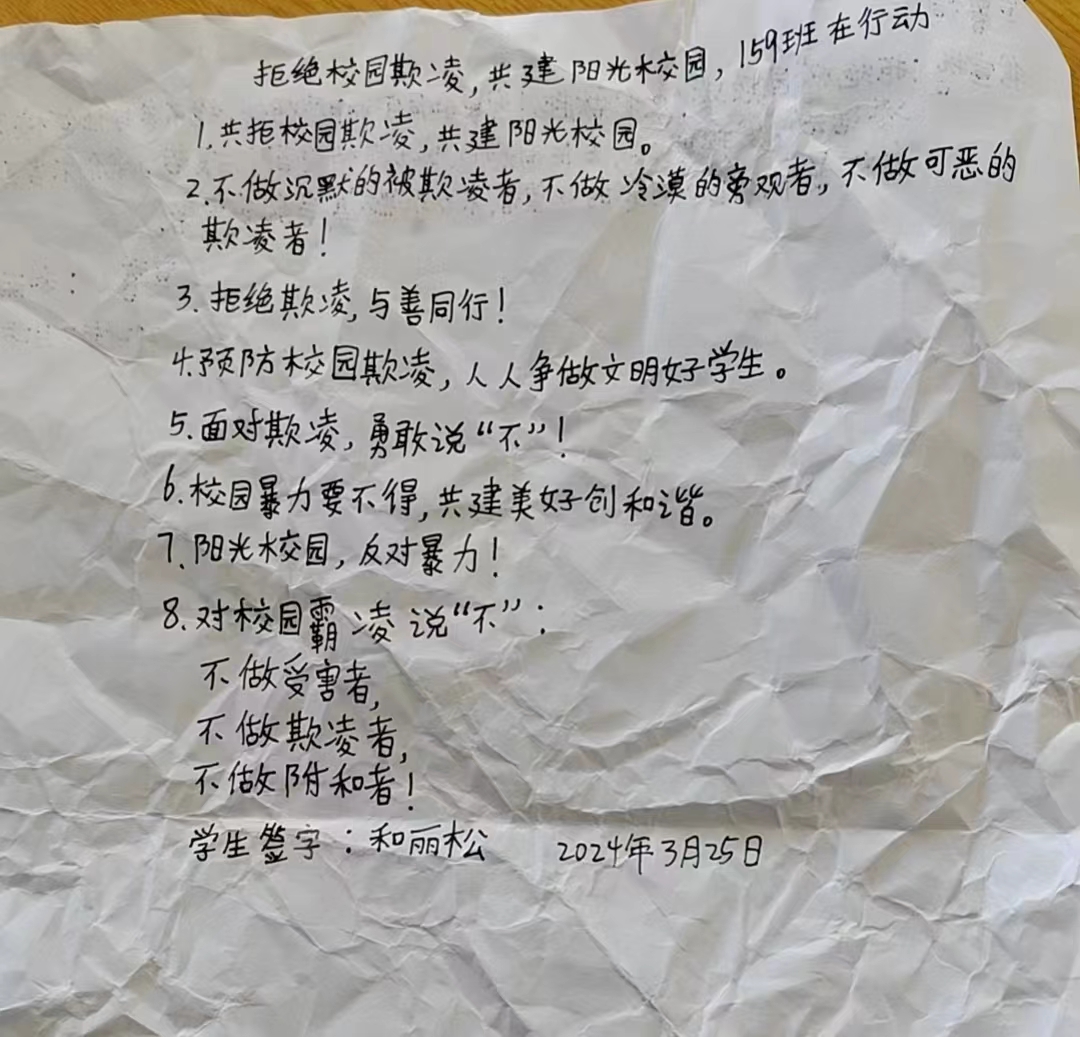 拒绝校园欺凌,共建阳光校园,159班在行动
1.共拒校园欺凌,共建阳光校园。
2.不做沉默的被欺凌者,不做冷漠的旁观者,不做可恶的
欺凌者!
3.拒绝欺凌,与善同行!
4.预防校园欺凌,人人争做文明好学生。
5.面对欺凌,勇敢说“不”!
6.校园暴力要不得,共建美好创和谐。
7.阳光校园,反对暴力!
8.对校园霸凌说“不”:
不做受害者,
不做欺凌者,
不做附和者!
学生签字:和丽松 2024年3月25日